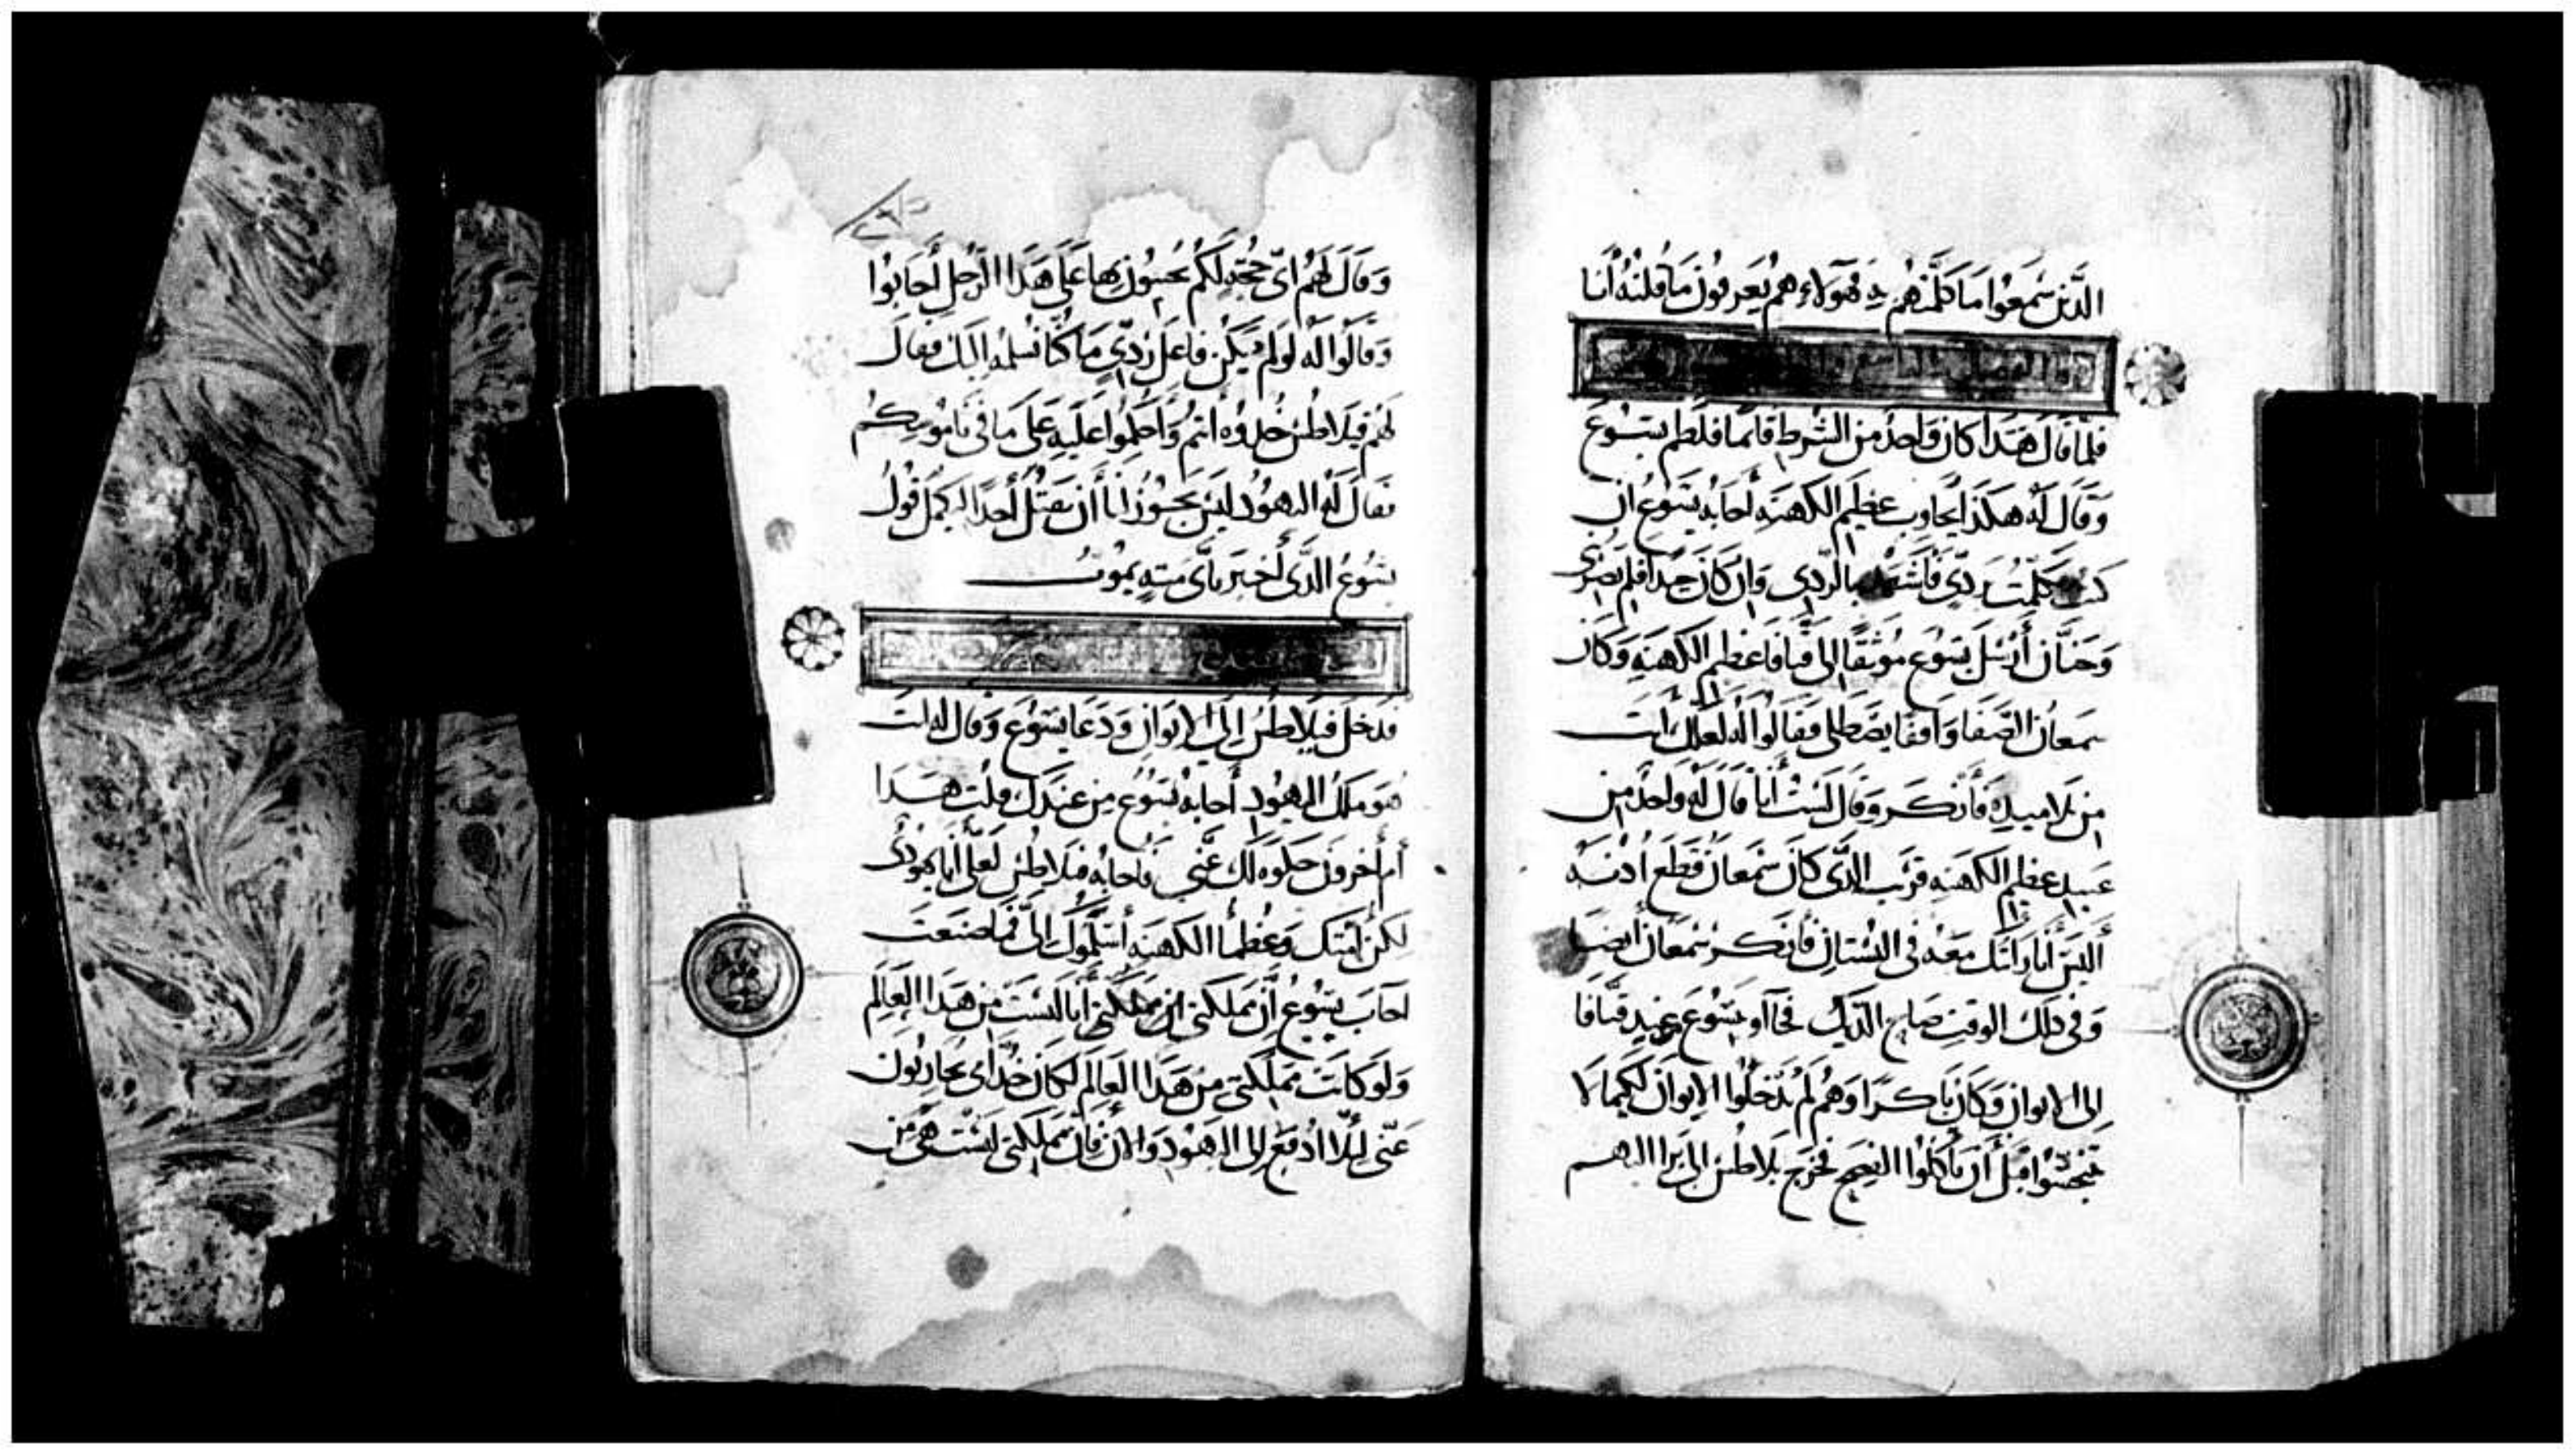 الَّذين سَمعوُا مَا كلَّمتُهم بِهِ فهَوَلاءِ هم يَعرفوُن مَا قُلتُهُ أَنا
فلمَّا قال هَذَا كان وَاحدٌ من الشُرط قائمًا فلَطم يَسُوع
وَقَال لَه هكذا تجاوب عظيم الكهنه أَجابهُ يَسُوع ان
كنتُ تكلّمتُ بردي فَاشهَد بالردي وَان كان جيدا فلم تضربني
وَحَنَّان أَرسَل يَسُوع مُوثقًا الى قيافا عظيم الكهنَه وَكان
سمعان الصَفا وَاقفا يصَطلى فقالوُا لَه لعلك انت
من تلاميده فأنكر وَقال لَستُ أنا قال لَه واحد من
عبيد عظيم الكهنه قريب الذى كان سمعان قطع أدنه
أليس أنا رَايتك معه فى البُستان فأنكر سُمعان أيضا
وَفى دلك الوقت صَاح الديك فجآاو بيسُوع من عند قيافا
الى الايوان وَكان بَاكرًا وَهُم لم يدخلوا الايوان لكيما لا
يتنجسُوا قبل أن يأكلوا الفصح فخرج بلاطس الى برا اليهم
وَقال لهُم اىّ حجّهٍ لكم تحبسُون بها عَلى هَذا الرَجل أَجابوُا
وَقَالوا له لَو لم يكن فاعل ردّي مَا كنّا نسلمه اليك فقال
لهم فيلاطس خُدوه أنتم وَاحكموا عليه عَلى مَا فى نامُوسِكُم
فقال لَه اليهوُد ليس يجوُز لنا أن نقتل أحدًا ليكمل قول
يسُوع الذى أخبَر باى ميتهٍ يموُت
فَدخل فيلاطس الى الايوان وَدعَا يسُوع وَقال له انت
هو ملك اليهوُد أَجابهُ يسُوع من عندك قلت هَذا
أم أخروُن حكوه لك عَنّي فأجابه فيلاطس لعلى أنا يهودى
لكن أمتك وَعُظمآ الكهنه أسلموُك الىّ فما صنعت
أجابَ يسُوعُ أن مملكتى أنا ليسَت من هَذا العالم
وَلو كانت مملكتي من هَذا العالم لكان خُدَّامى يحاربون
عَنّى لئلّا ادفع الى اليهوُد وَالان فان مملكتى ليسَت هى من